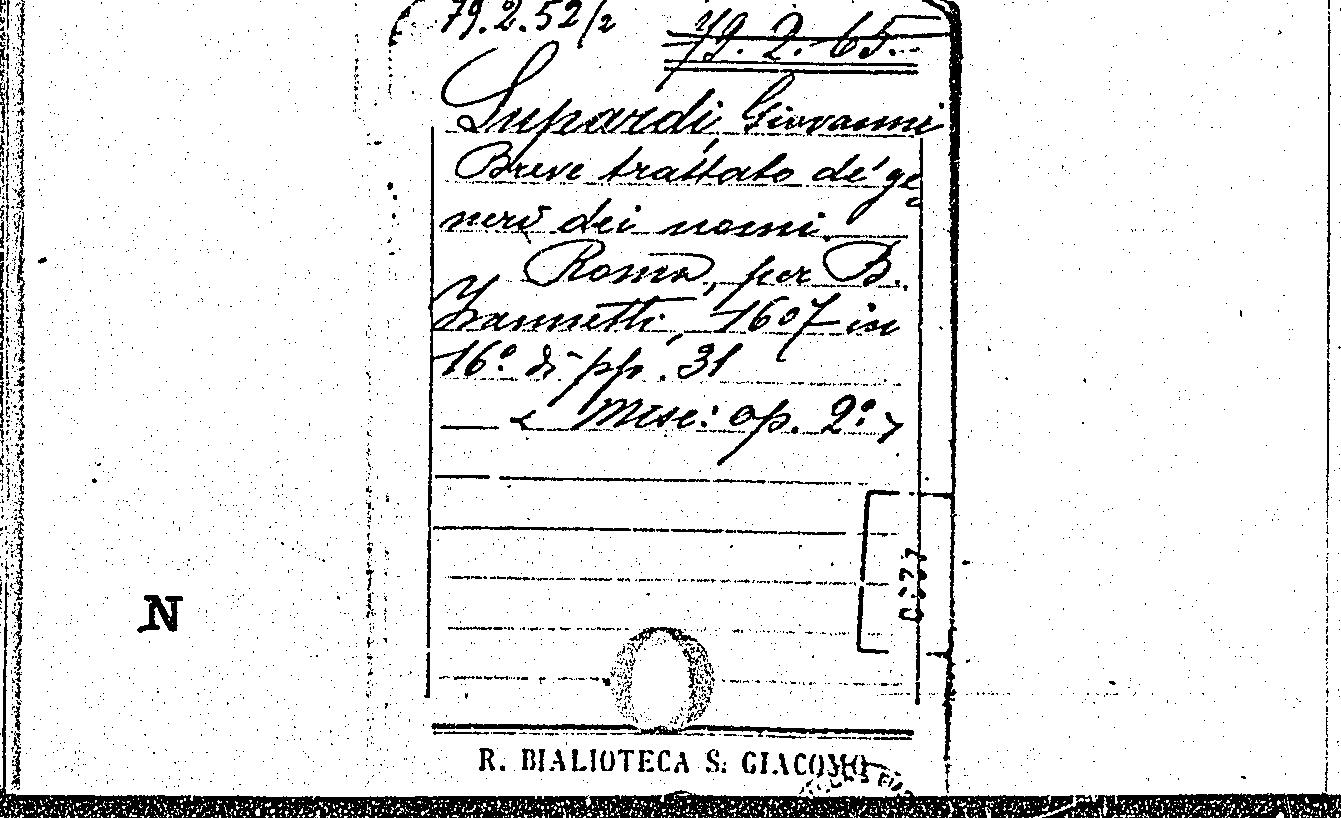 79.2.52/2 79.2.65.
Lupardi, Giovanni
Breve trattato de' ge=
neri dei nomi.
Roma, per B.
Zannetti, 1607 in
16.° di pp. 31
— « Misc: op. 2.° »
N
R. BIALIOTECA S. GIACOMO